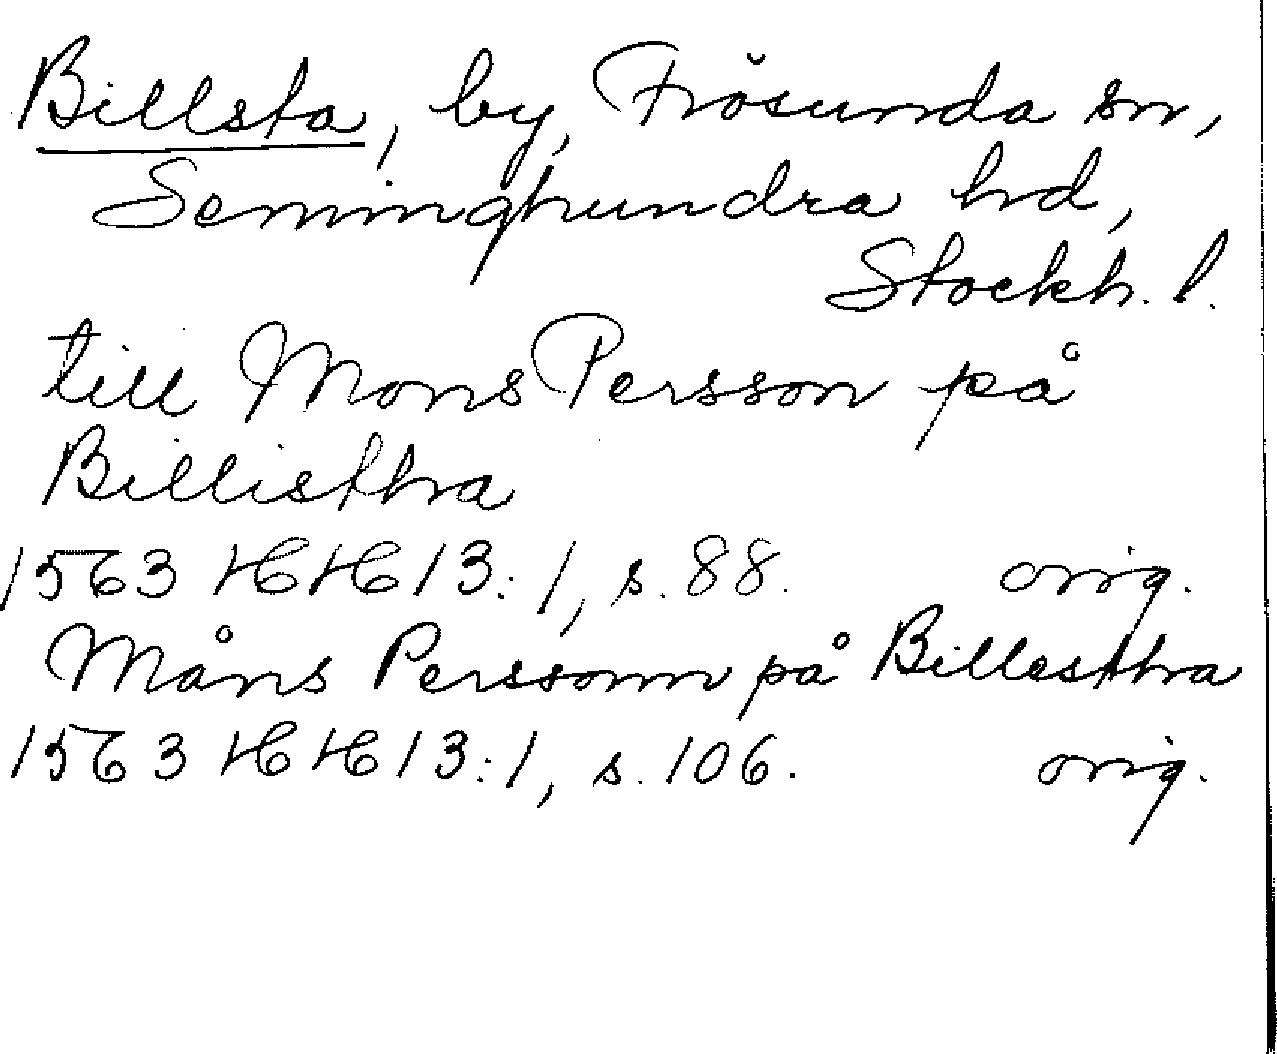 Billsta, by, Frösunda sn,
Seminghundra hd,
Stockh. l.
till Mons Persson på
Billisthra
1563 HH 13:1, s. 88. orig.
Måns Perssonn på Billesthra
1563 HH 13:1, s. 106. orig.